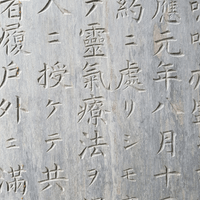 應元年八月十
約ニ處リシモ
テ靈氣療法ヲ
人ニ授ケテ共
者履戶外ニ滿